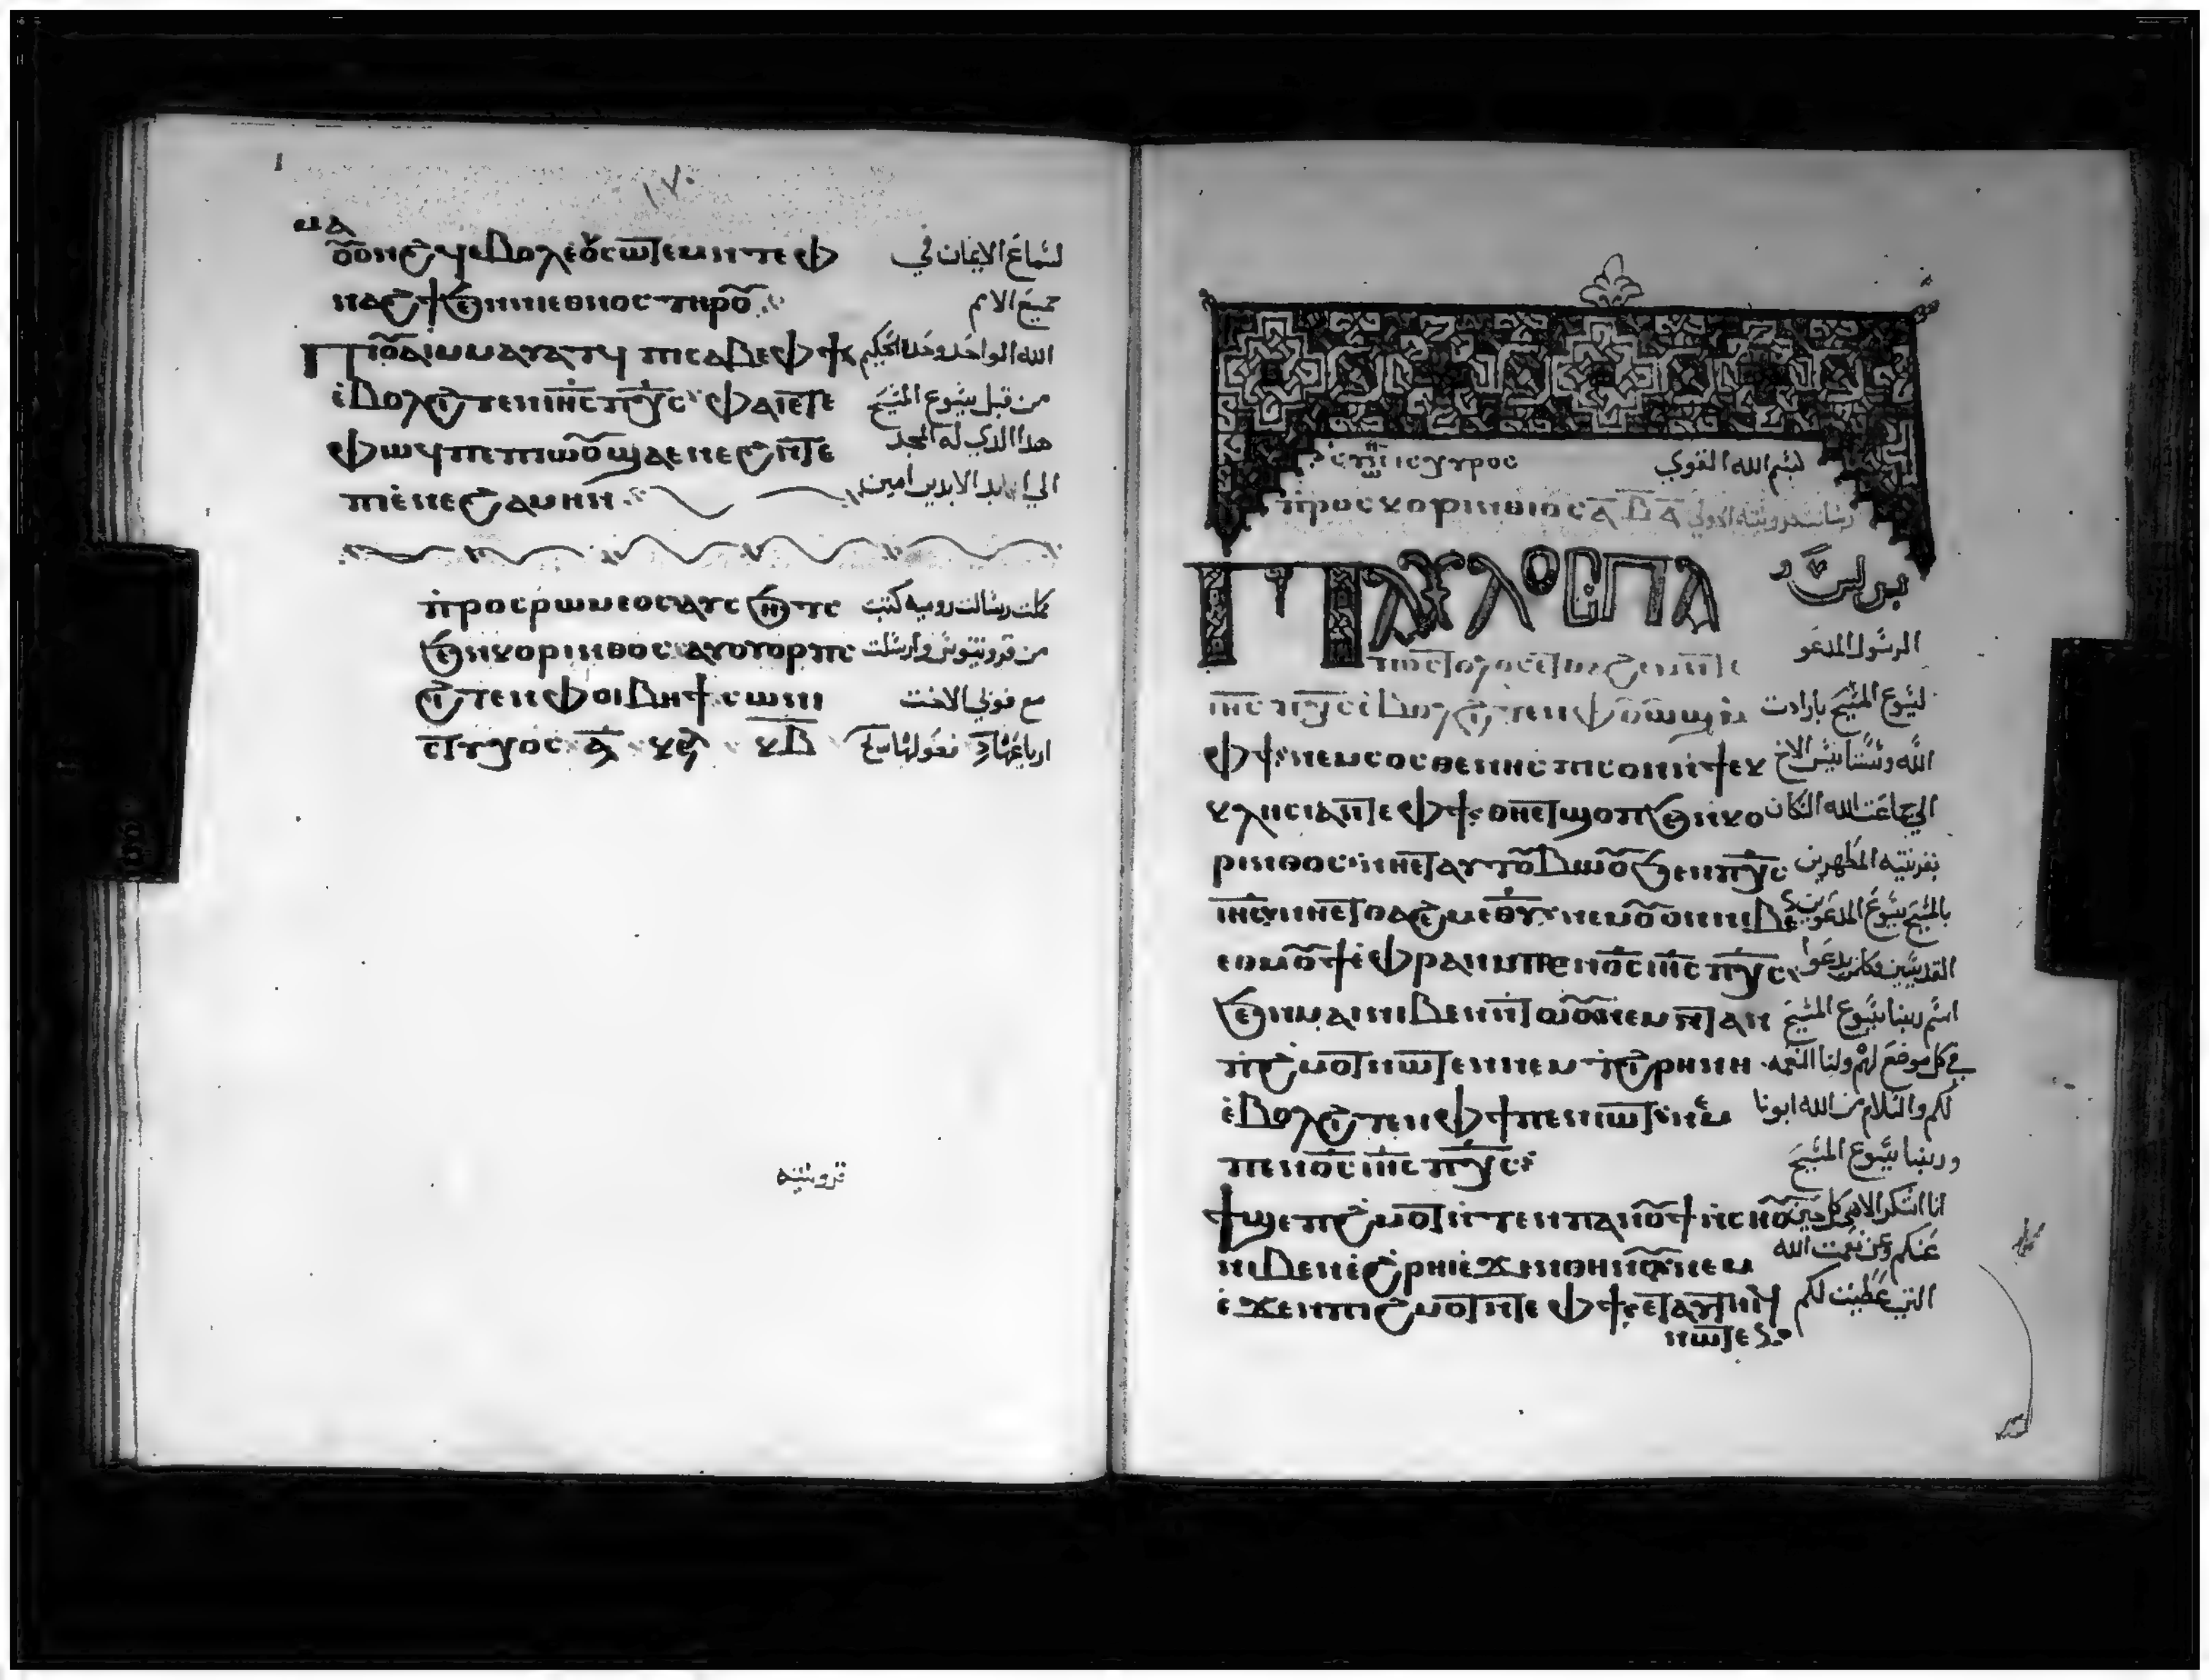 ١٧٠
ⲟⲩⲟⲛϩϥ ⲉⲃⲟⲗ ⲉⲟⲩⲥⲱⲧⲉⲙ ⲛⲧⲉ ⲫ لسماع الايمان في
ⲛⲁϩϯ ϧⲉⲛ ⲛⲓⲉⲑⲛⲟⲥ ⲧⲏⲣⲟⲩ جميع الامم
ⲡⲓⲟⲩⲁⲓ ⲙⲙⲁⲩⲁⲧϥ ⲡⲓⲥⲁⲃⲉ ⲫϯ الله الواحد وحده الحكيم
ⲉⲃⲟⲗ ϩⲓⲧⲉⲛ ⲓⲏⲥ ⲡⲭⲥ ⲫⲁⲓ ⲉⲧⲉ من قبل يسوع المسيح
ⲫⲱϥ ⲡⲉ ⲡⲓⲱⲟⲩ ϣⲁ ⲉⲛⲉϩ ⲛⲧⲉ هذا الذي له المجد
ⲡⲓⲉⲛⲉϩ ⲁⲙⲏⲛ الي ابد الابدين امين
ⲡⲣⲟⲥ ⲣⲱⲙⲉⲟⲥ ⲁⲩⲥϧⲏⲧⲥ كملت رسالت روميه كتبت
ϧⲉⲛ ⲕⲟⲣⲓⲛⲑⲟⲥ ⲁⲩⲟⲩⲟⲣⲡⲥ من قرونتيوس وارسلت
ϩⲓⲧⲉⲛ ⲫⲟⲓⲃⲏ ϯⲥⲱⲛⲓ مع فوني الاخت
ⲥⲧⲩⲭⲟⲥ ⲁ
قرونتيه
ⲓⲥⲭⲩⲣⲟⲥ بسم الله القوي
ⲡⲣⲟⲥ ⲕⲟⲣⲓⲛⲑⲓⲟⲥ ⲁ
ⲡⲁⲩⲗⲟⲥ ⲡⲁ بولس
ⲡⲟⲥⲧⲟⲗⲟⲥ ⲉⲧⲑⲁϩⲉⲙ ⲛⲧⲉ الرسول المدعو
ⲓⲏⲥ ⲡⲭⲥ ⲉⲃⲟⲗ ϩⲓⲧⲉⲛ ⲫⲟⲩⲱϣ ⲙ ليسوع المسيح بارادت
ⲫϯ ⲛⲉⲙ ⲥⲟⲥⲑⲉⲛⲏⲥ ⲡⲓⲥⲟⲛ ⲛϯⲉⲕ الله وسستانيس الاخ
ⲕⲗⲏⲥⲓⲁ ⲛⲧⲉ ⲫϯ ⲑⲏ ⲉⲧϣⲟⲡ ϧⲉⲛ ⲕⲟ الي جماعت الله الكان
ⲣⲓⲛⲑⲟⲥ ⲛⲏ ⲉⲧⲁⲩⲧⲟⲩⲃⲱⲟⲩ ϧⲉⲛ ⲡⲭⲥ بقرنتيه المطهرين
ⲓⲏⲥ ⲛⲏ ⲉⲧⲑⲁϩⲉⲙ ⲉⲑⲩ ⲛⲉⲙ ⲟⲩⲟⲛ ⲛⲓⲃⲉ بالمسيح يسوع المدعوين
ⲉⲑⲙⲟⲩϯ ⲉⲫⲣⲁⲛ ⲙⲡⲉⲛⲟⲥ ⲓⲏⲥ ⲡⲭⲥ القديسين وكلمن يدعوا
ϧⲉⲛ ⲙⲁⲓ ⲛⲓⲃⲉⲛ ⲛⲧⲱⲟⲩ ⲛⲉⲙ ⲛⲧⲁⲛ اسم ربنا يسوع المسيح
ⲡϩⲙⲟⲧ ⲛⲱⲧⲉⲛ ⲛⲉⲙ ⲧϩⲓⲣⲏⲛⲏ في كل موضع لهم ولنا النعمه
ⲉⲃⲟⲗ ϩⲓⲧⲉⲛ ⲫϯ ⲡⲉⲛⲓⲱⲧ ⲛⲉⲙ لكم والسلام من الله ابونا
ⲡⲉⲛⲟⲥ ⲓⲏⲥ ⲡⲭⲥ وربنا يسوع المسيح
ϯϣⲉⲡϩⲙⲟⲧ ⲛⲧⲉⲛ ⲡⲁⲛⲟⲩϯ ⲛⲥⲏⲟⲩ انا اشكر الاهي كل حين
ⲛⲓⲃⲉⲛ ⲉϩⲣⲏⲓ ⲉϫⲉⲛ ⲑⲏⲛⲟⲩ ⲛⲉⲙ عنكم وعن نعمت الله
ⲉϫⲉⲛ ⲡⲓϩⲙⲟⲧ ⲛⲧⲉ ⲫϯ ⲉⲧⲁⲩⲧⲏⲓϥ التي عطيت لكم
ⲛⲱⲧⲉ